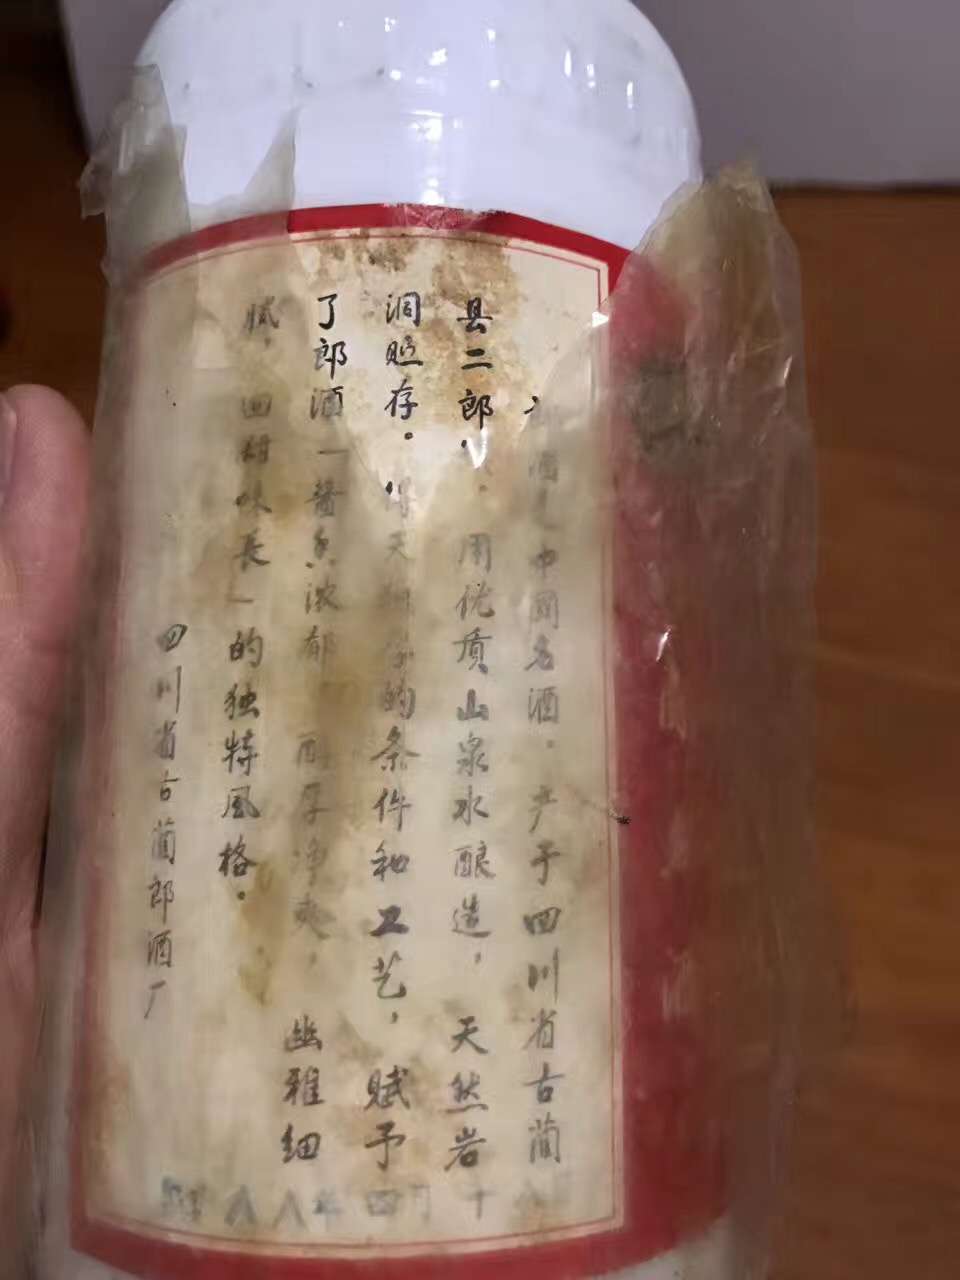 郎酒是中国名酒。产于四川省古蔺
县二郎。用优质山泉水酿造，天然岩
洞贮存。得天独的条件和工艺，赋予
了郎酒“酱香浓郁，醇厚净爽，幽雅细
腻，回甜味长”的独特風格。
四川省古蔺郎酒厂
八八年四月十